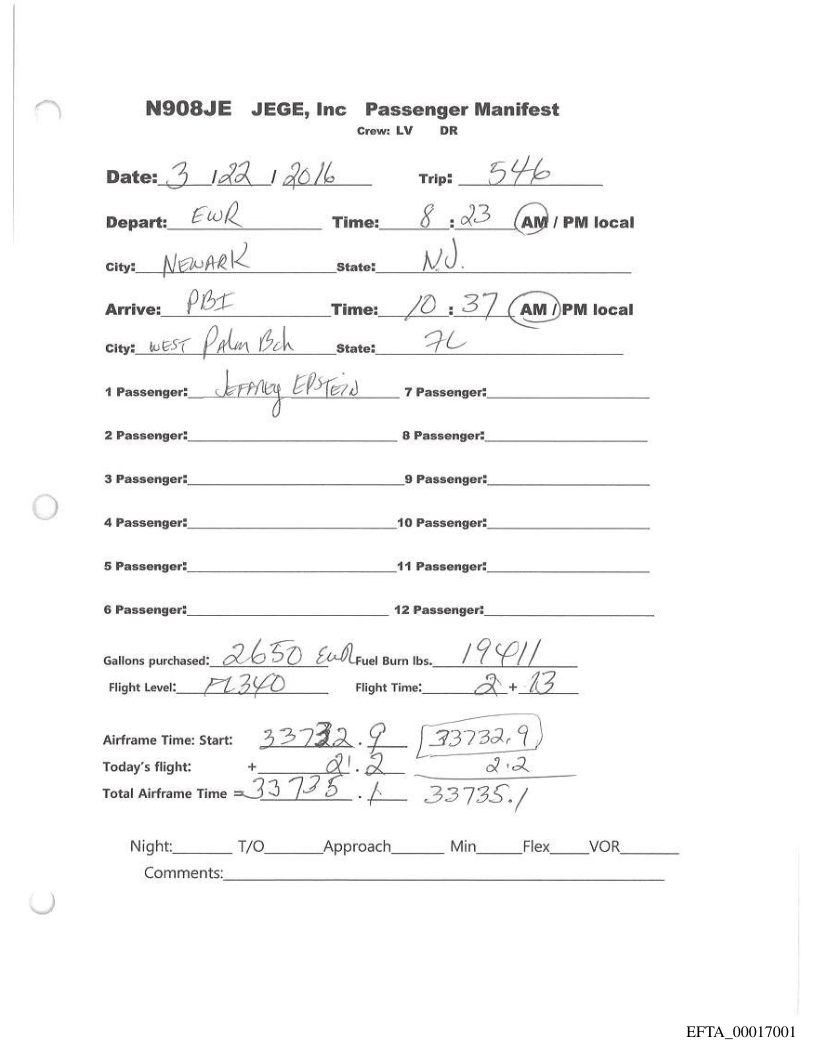 N908JE JEGE, Inc Passenger Manifest
Crew: LV DR
Date: 3 / 22 / 2016 Trip: 546
Depart: EWR Time: 8 : 23 AM / PM local
City: NEWARK State: NJ.
Arrive: PBI Time: 10 : 37 AM / PM local
City: WEST Palm Bch State: FL
1 Passenger: JEFFREY EPSTEIN 7 Passenger:
2 Passenger: 8 Passenger:
3 Passenger: 9 Passenger:
4 Passenger: 10 Passenger:
5 Passenger: 11 Passenger:
6 Passenger: 12 Passenger:
Gallons purchased: 2650 EWR Fuel Burn lbs. 19411
Flight Level: FL340 Flight Time: 2 + 13
Airframe Time: Start: 33732 . 9 33732.9
Today's flight: + 2 . 2 2.2
Total Airframe Time = 33735 . 1 33735.1
Night: T/O Approach Min Flex VOR
Comments:
EFTA_00017001